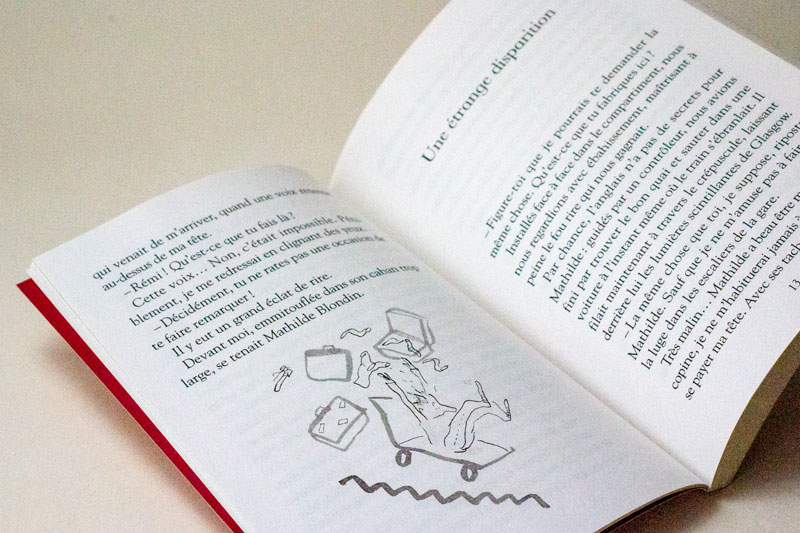 qui venait de m'arriver, quand une voix retentit
au-dessus de ma tête.
–Rémi ! Qu'est-ce que tu fais là ?
Cette voix… Non, c'était impossible. Péni-
blement, je me redressai en clignant des yeux.
–Décidément, tu ne rates pas une occasion de
te faire remarquer !
Il y eut un grand éclat de rire.
Devant moi, emmitouflée dans son caban trop
large, se tenait Mathilde Blondin.
Une étrange disparition
–Figure-toi que je pourrais te demander la
même chose. Qu'est-ce que tu fabriques ici ?
Installés face à face dans le compartiment, nous
nous regardions avec ébahissement, maîtrisant à
peine le fou rire qui nous gagnait.
Par chance, l'anglais n'a pas de secrets pour
Mathilde : guidés par un contrôleur, nous avions
fini par trouver le bon quai et sauter dans une
voiture à l'instant même où le train s'ébranlait. Il
filait maintenant à travers le crépuscule, laissant
derrière lui les lumières scintillantes de Glasgow.
– La même chose que toi, je suppose, riposte
Mathilde. Sauf que je ne m'amuse pas à faire
la luge dans les escaliers de la gare.
Très malin… Mathilde a beau être
copine, je ne m'habituerai jamais à
se payer ma tête. Avec ses
13